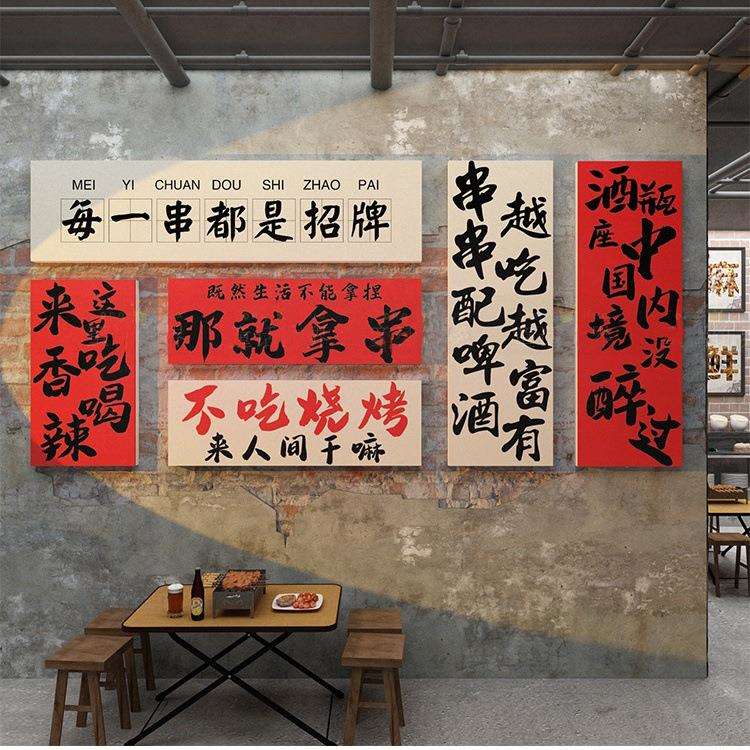 MEI YI CHUAN DOU SHI ZHAO PAI
每一串都是招牌
这里吃喝
来香辣
既然生活不能拿捏
那就拿串
不吃烧烤
来人间干嘛
串串配啤酒
越吃越富有
酒瓶座中国境内没醉过